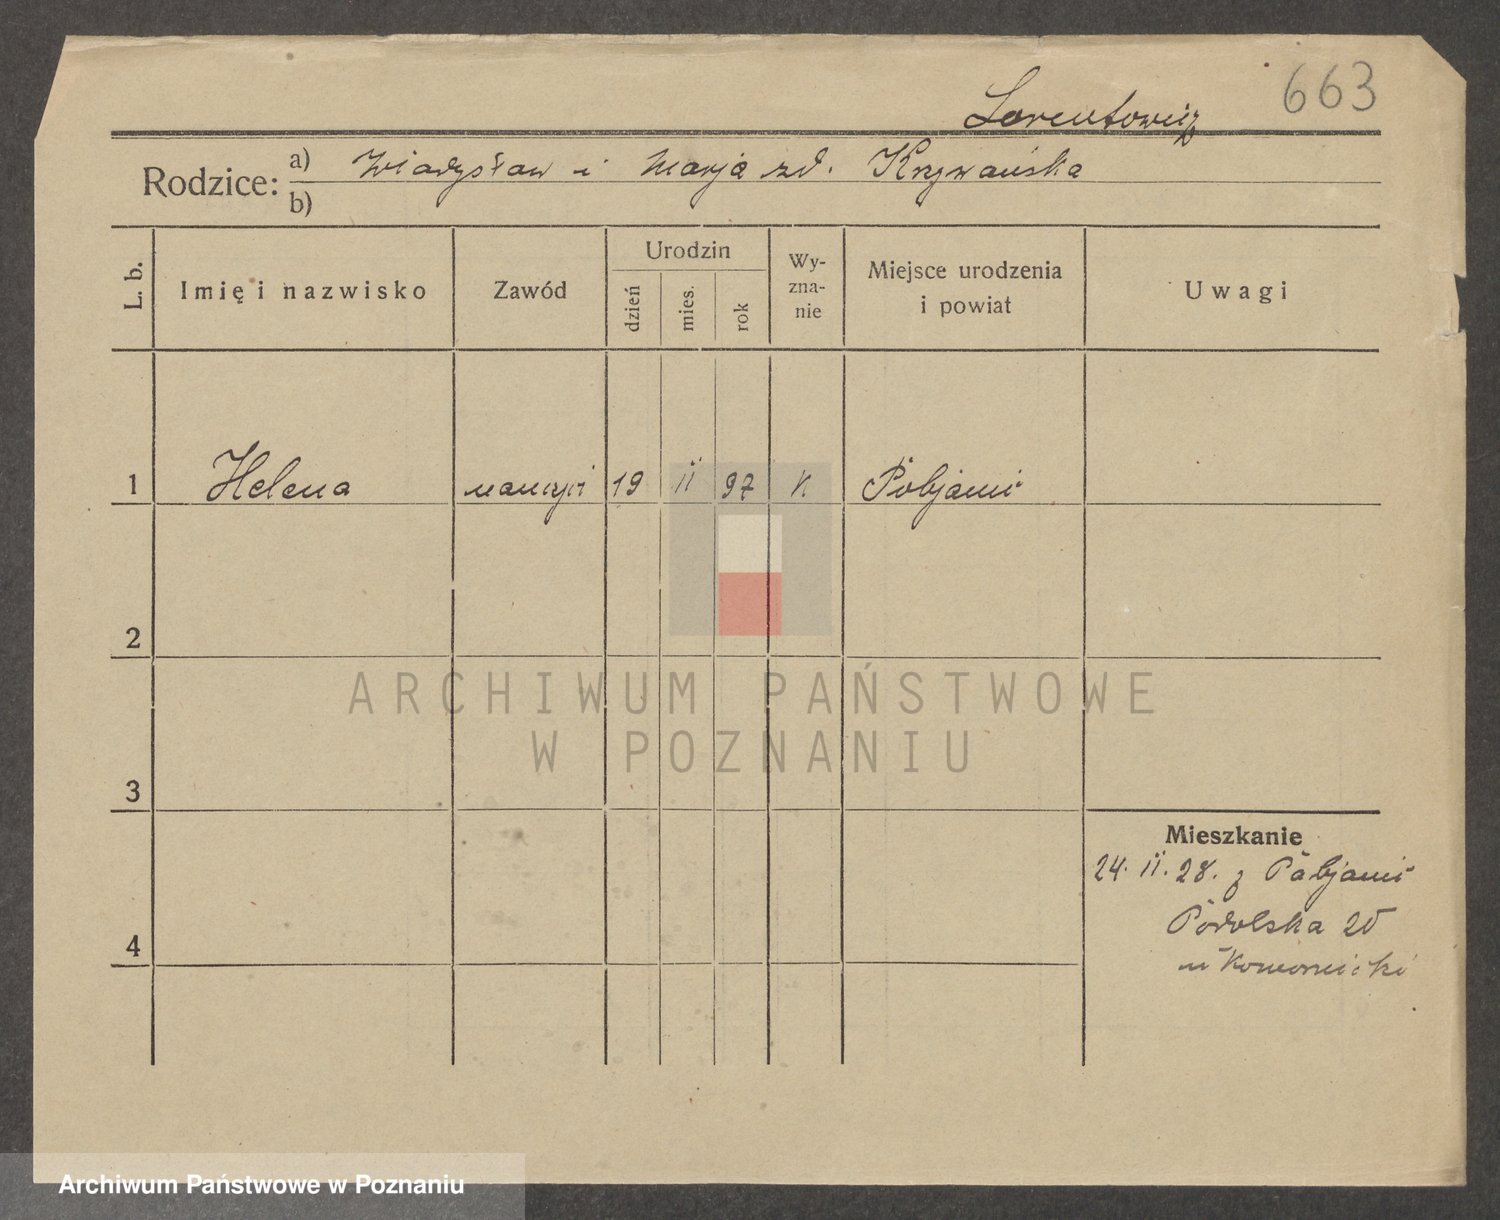 663
Lorentowicz
Rodzice: a) Władysław i Marja zd. Krzywańska
b)
L. b.
Imię i nazwisko
Zawód
Urodzin
dzień
mies.
rok
Wy-
zna-
nie
Miejsce urodzenia
i powiat
Uwagi
1 Helena 19 II 97 K Pabjanic
2
3
4
Mieszkanie
24. II. 28. z Pabjanic
Podolska 20
ARCHIWUM PAŃSTWOWE
W POZNANIU
Archiwum Państwowe w Poznaniu